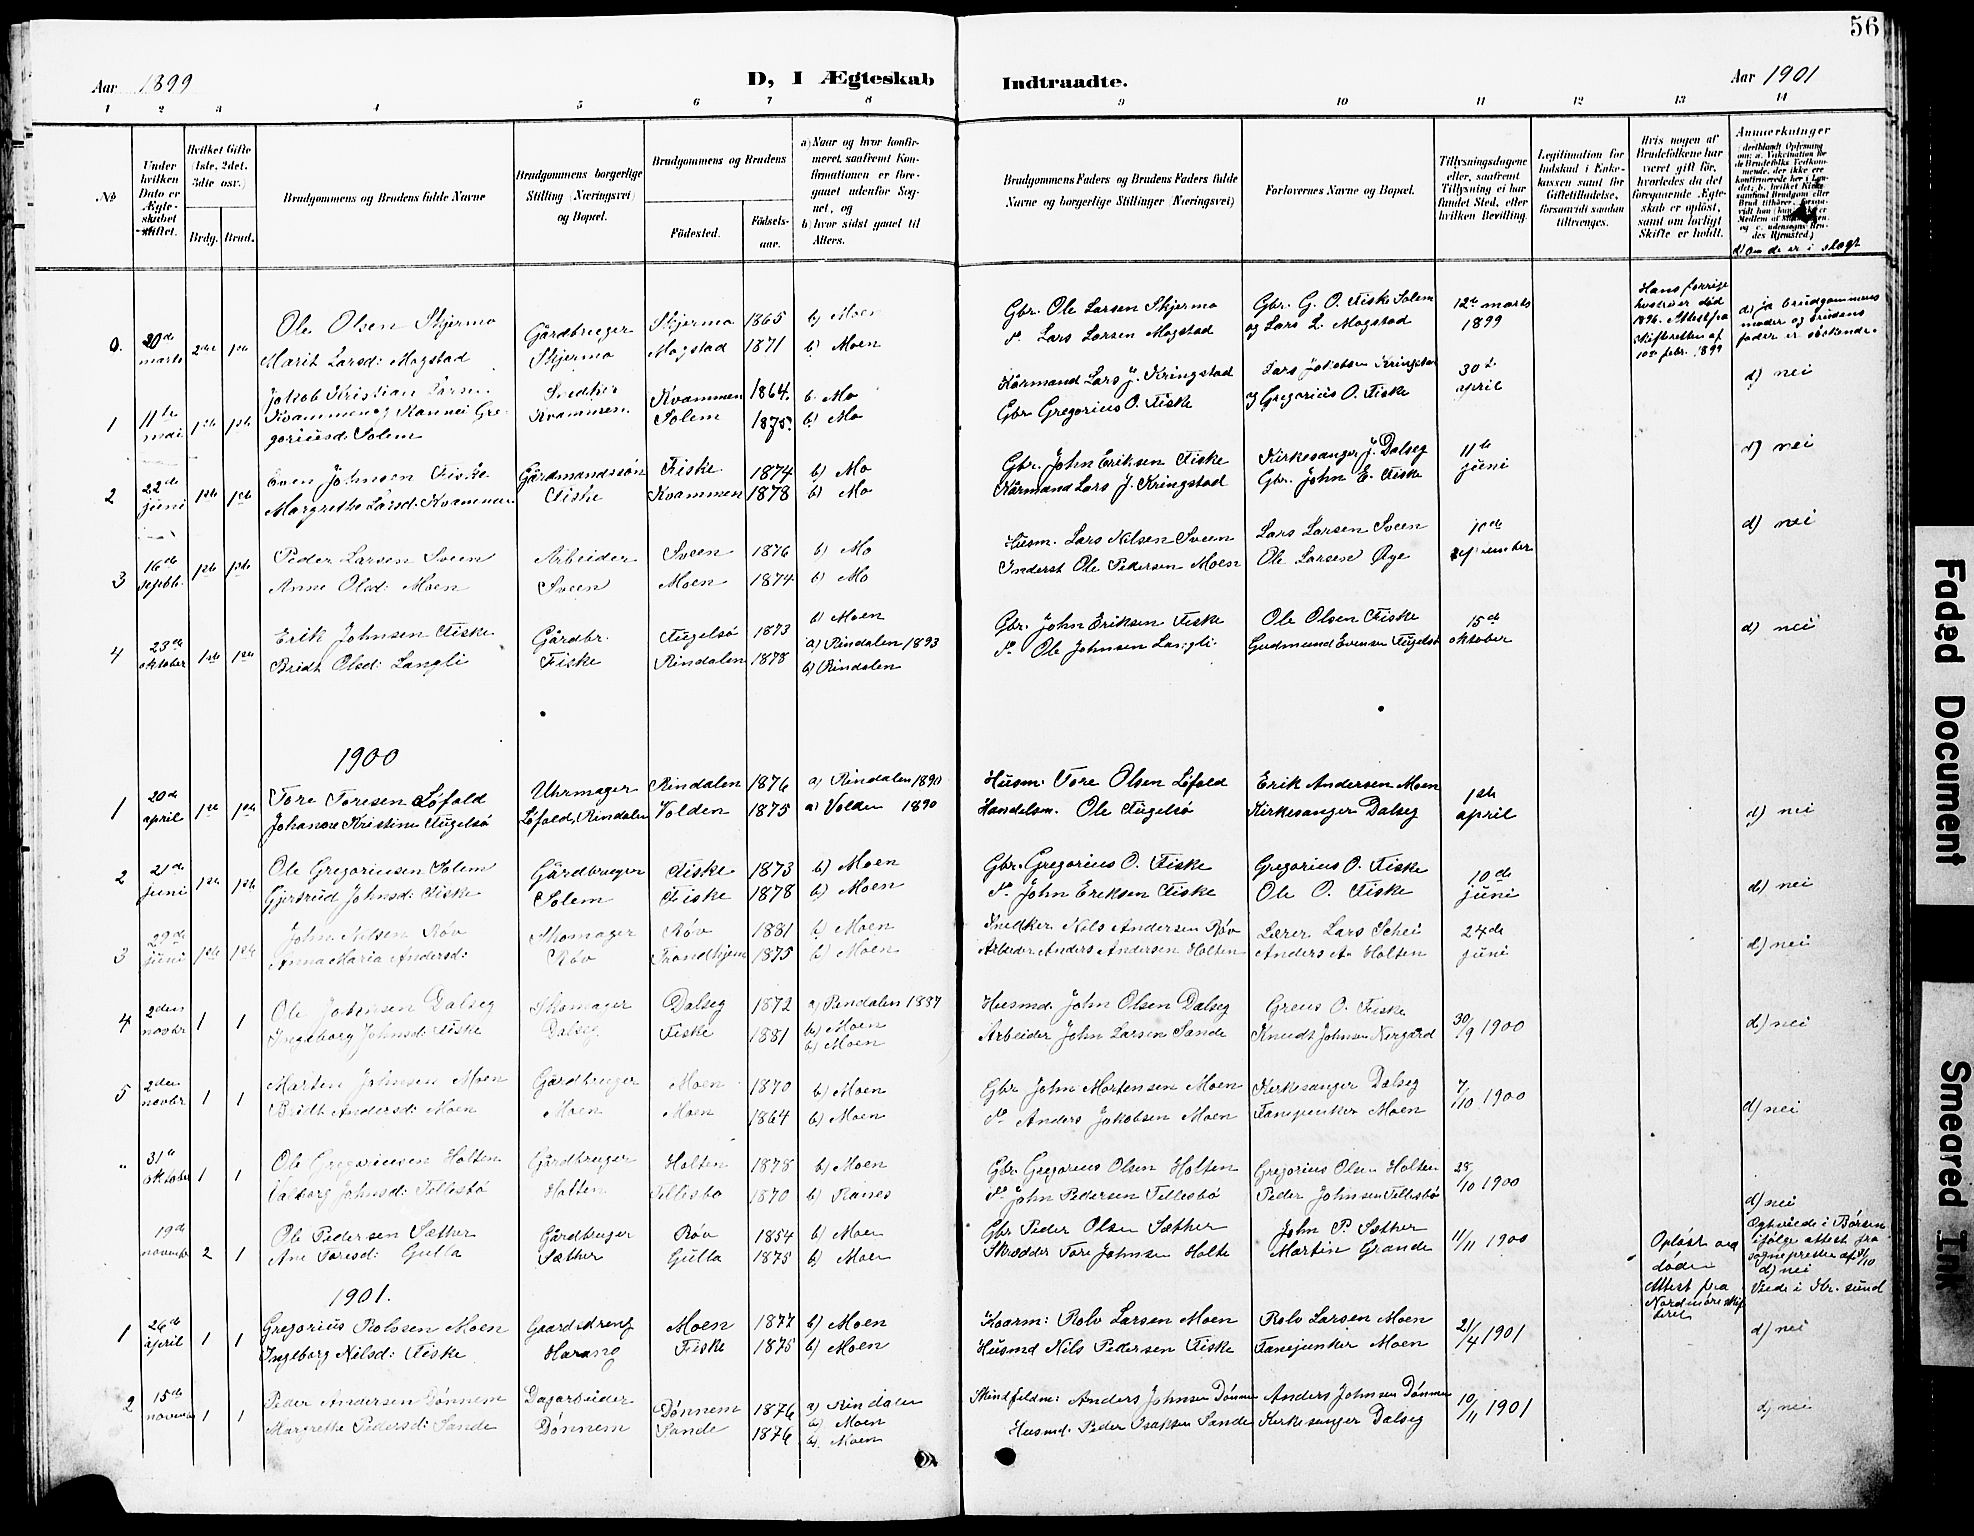 56
Aar 1899
D, I Ægteskab
Indtraadte.
Aar 1901
1 2 3 4 5 6 7 8 9 10 11 12 13 14
No
Under hvilken Dato er Ægteskabet stiftet.
Hvilket Gifte (1ste, 2det, 3die osv.)
Brdg. Brud.
Brudgommens og Brudens fulde Navne
Brudgommens borgerlige Stilling (Næringsvei) og Bopæl.
Brudgommens og Brudens
Fødested.
Fødselsaar.
a) Naar og hvor konfirmeret, saafremt Konfirmationen er foregaaet udenfor Sognet, og
b) hvor sidst gaaet til Alters.
Brudgommens Faders og Brudens Faders fulde Navne og borgerlige Stillinger (Næringsvei)
Forlovernes Navne og Bopæl.
Tillysningsdagene eller, saafremt Tillysning ei har fundet Sted, efter hvilken Bevilling.
Legitimation for Indskud i Enkekassen samt for Giftetilladelse, forsaavidt saadan tiltrænges.
Hvis nogen af Brudefolkene har været gift før, hvorledes da det foregaaende Ægteskab er opløst, samt om lovligt Skifte er holdt.
Anmærkninger
d) om de er i slægt
0. 20de marts 2det 1ste Ole Olsen Skjermo Gårdbruger Skjermo 1865 b) Moen Gbr. Ole Larsen Skjermo Gbr. G. O. Fiske Solem 12te marts Hans forrige hustru er død d) ja brudgommens
Marit Larsd: Mogstad Skjermo Mogstad 1871 b) Moen do Lars Larsen Mogstad og Lars L. Mogstad 1899 1896. Attest fra skifteretten af 10de febr. 1899 moder og brudens fader er søskende.
1 11te mai 1ste 1ste Jakob Kristian Larsen Snedker Kvammen 1864. b. Mo Kårmand Lars J. Kringstad Lars Jakobsen Kringstad 30te d) nei
Kvammen og Kannei Gre- Kvammen Solem 1875. b) Mo Gbr Gregorius O. Fiske og Gregorius O. Fiske april
goriusd: Solem
2 22de juni 1ste 1ste Even Johnsen Fiske Gårdmandssøn Fiske 1874 b) Mo Gbr. John Eriksen Fiske Kirkesanger J. Dalseg 11te d) nei
Margrethe Larsd: Kvammen Fiske Kvammen 1878 b) Mo Kårmand Lars J. Kringstad Gbr. John E. Fiske juni
3 16de septbr. 1ste 1ste Peder Larsen Sveen Arbeider Sveen 1876 b) Mo Husm. Lars Nilsen Sveen Lars Larsen Sveen 10de d) nei
Anne Olsd: Moen Sveen Moen 1874 b) Mo Inderst Ole Pedersen Moen Ole Larsen Øye
4 23de oktober 1ste 1ste Erik Johnsen Fiske Gårdbr. Fugelsø 1873 b) Moen Gbr. John Eriksen Fiske Ole Olsen Fiske 15de d) nei
Bridt Olsd: Langli Fiske Rindalen 1878 a) Rindalen 1893 do Ole Johnsen Langli. Gudmund Evensen Fugelsø oktober
b) Rindalen
1900
1 20de april 1ste 1ste Tore Toresen Løfald Uhrmager Rindalen 1876 a) Rindalen 1890 Husm. Tore Olsen Løfald Erik Andersen Moen 1ste
Johanne Kristine Fugelsø Løfald, Rindalen Volden 1875 a) Volden 1890 Handelsm. Ole Fugelsø Kirkesanger Dalseg april d) nei
2 21de juni 1ste 1ste Ole Gregoriusen Solem Gårdbruger Fiske 1873 b) Moen Gbr. Gregorius O. Fiske Gregorius O. Fiske 10de
Gjertrud Johnsd: Fiske Solem Fiske 1878 b) Moen do John Eriksen Fiske Ole O. Fiske juni d) nei
3 29de juni 1ste 1ste John Nilsen Røv Skomager Røv 1881 b) Moen Snedker Nils Andersen Røv Lærer Lars Schei 24de
Anna Maria Andersd: Røv Trondhjem 1875 b) Moen Arbeider Anders Andersen Holten Anders A. Holten juni d) nei
4 2den novbr 1 1 Ole Johnsen Dalseg Skomager Dalseg 1872 a) Rindalen 1887 Husmd. John Olsen Dalseg Greus O. Fiske
Ingeborg Johnsd: Fiske Dalseg Fiske 1881 b) Moen Arbeider John Larsen Sande Knudt Johnsen Nergård 30/9 1900 d) nei
b) Moen
5 2den novbr 1 1 Marten Johnsen Moen Gårdbruger Moen 1870 b) Moen Gbr John Mortensen Moen Kirkesanger Dalseg 7/10 1900
Bridt Andersd: Moen Moen Moen 1864 b) Moen do Anders Jakobsen Moen Fanejunker Moen d) nei
" 31te oktober 1 1 Ole Gregoriusen Holten Gårdbruger Holten 1878 b) Moen Gbr. Gregorius Olsen Holten Gregorius Olsen Holten 28/10 1900
Valborg Johnsd: Tellesbø Holten Tellesbø 1870 b) Ranes do John Pedersen Tellesbø Peder Johnsen Tellesbø d) nei
19de novembr 2 1 Ole Pedersen Sæther Gårdbruger Røv 1854 b) Moen Gbr Peder Olsen Sæther John P. Sæther 11/11 1900 Opløst ved døden Attest fra Nordmøre
Ane Toresd: Gulla Sæther Gulla 1875 b) Moen Skrædder Tore Johnsen Holte Martin Grande Ægteviede i Børsen ifølge attest fra sognepresten af d) nei
Viede i Kr. sund
1901.
1 26de april 1 1 Gregorius Rolvsen Moen Gaard Moen 1877 b) Moen Kaarm: Rolv Larsen Moen Rolv Larsen Moen 21/4 1901 d) nei
Ingeborg Nilsd: Fiske Harang Fiske 1875 b) Moen Husmd Nils Pedersen Fiske Fanejunker Moen
2 15de november 1 1 Peder Andersen Dønnem Dagarbeider Dønnem 1876 a) Rindalen Skindfeldm: Anders Johnsen Dønnem Anders Johnsen Dønnem 10/11 1901 d) nei
Margrethe Pedersd: Sande Dønnem Sande 1876 b) Moen Husmd. Peder Isaksen Sande Kirkesanger Dalseg
b. Moen
Faded Document
Smeared Ink